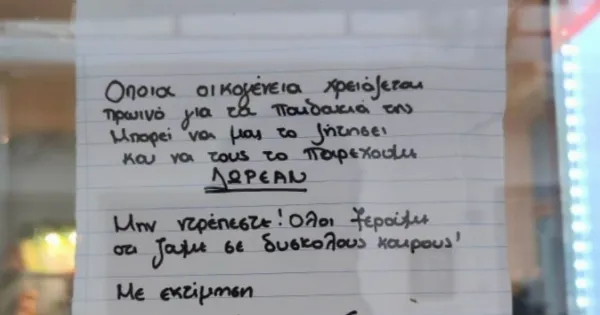 Οποια οικογένεια χρειάζεται
πρωινό για τα παιδακιά της
Μπορεί να μας το ζητησει
και να τους το παρεχουμε
ΔΩΡΕΑΝ
Μην ντρέπεστε! Ολοι ξερουμε
οτι ζουμε σε δυσκολους καιρους!
Με εκτιμηση